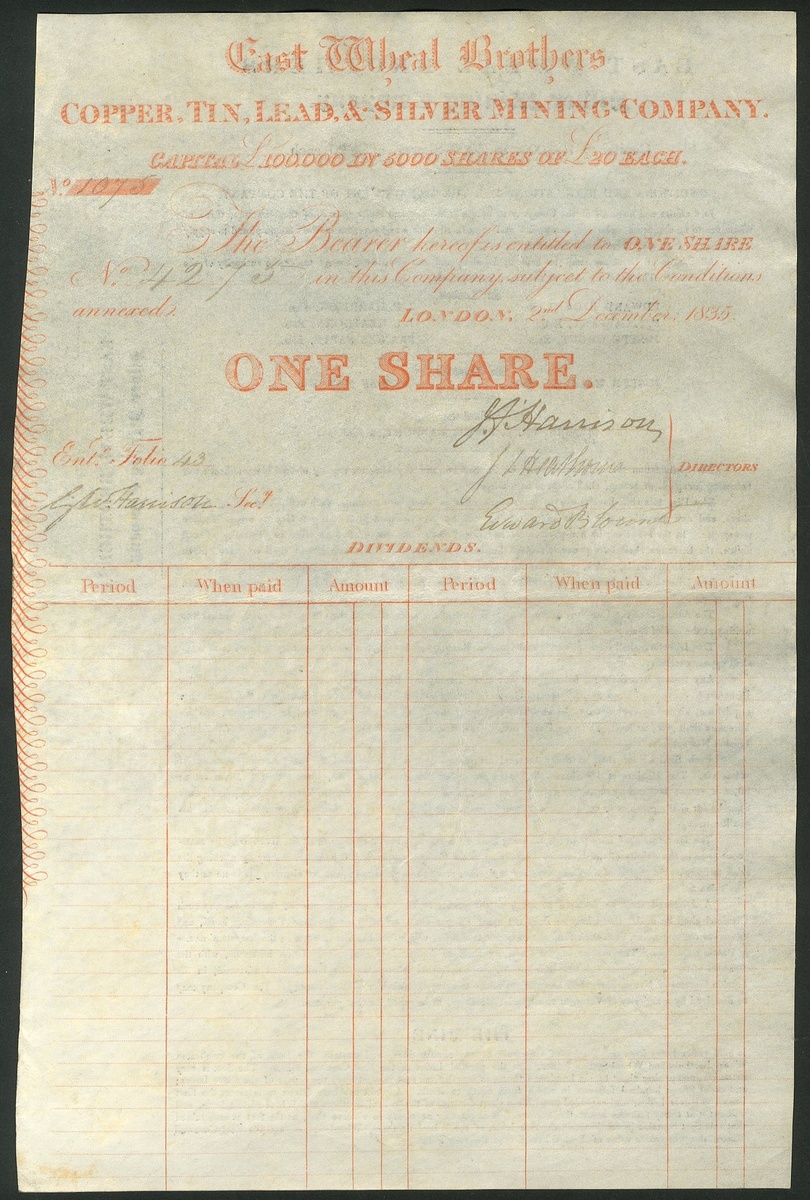 East Wheal Brothers
COPPER, TIN, LEAD, & SILVER MINING COMPANY.
CAPITAL £100,000 IN 5000 SHARES OF £20 EACH.
No. 1075
The Bearer hereof is entitled to ONE SHARE
No. 4275 in this Company, subject to the Conditions
annexed.
LONDON, 2nd December, 1835.
ONE SHARE.
J. J. Harrison
Entd. Folio 43
DIRECTORS
Harrison Secy.
Edward Blount
DIVIDENDS.
Period When paid Amount Period When paid Amount